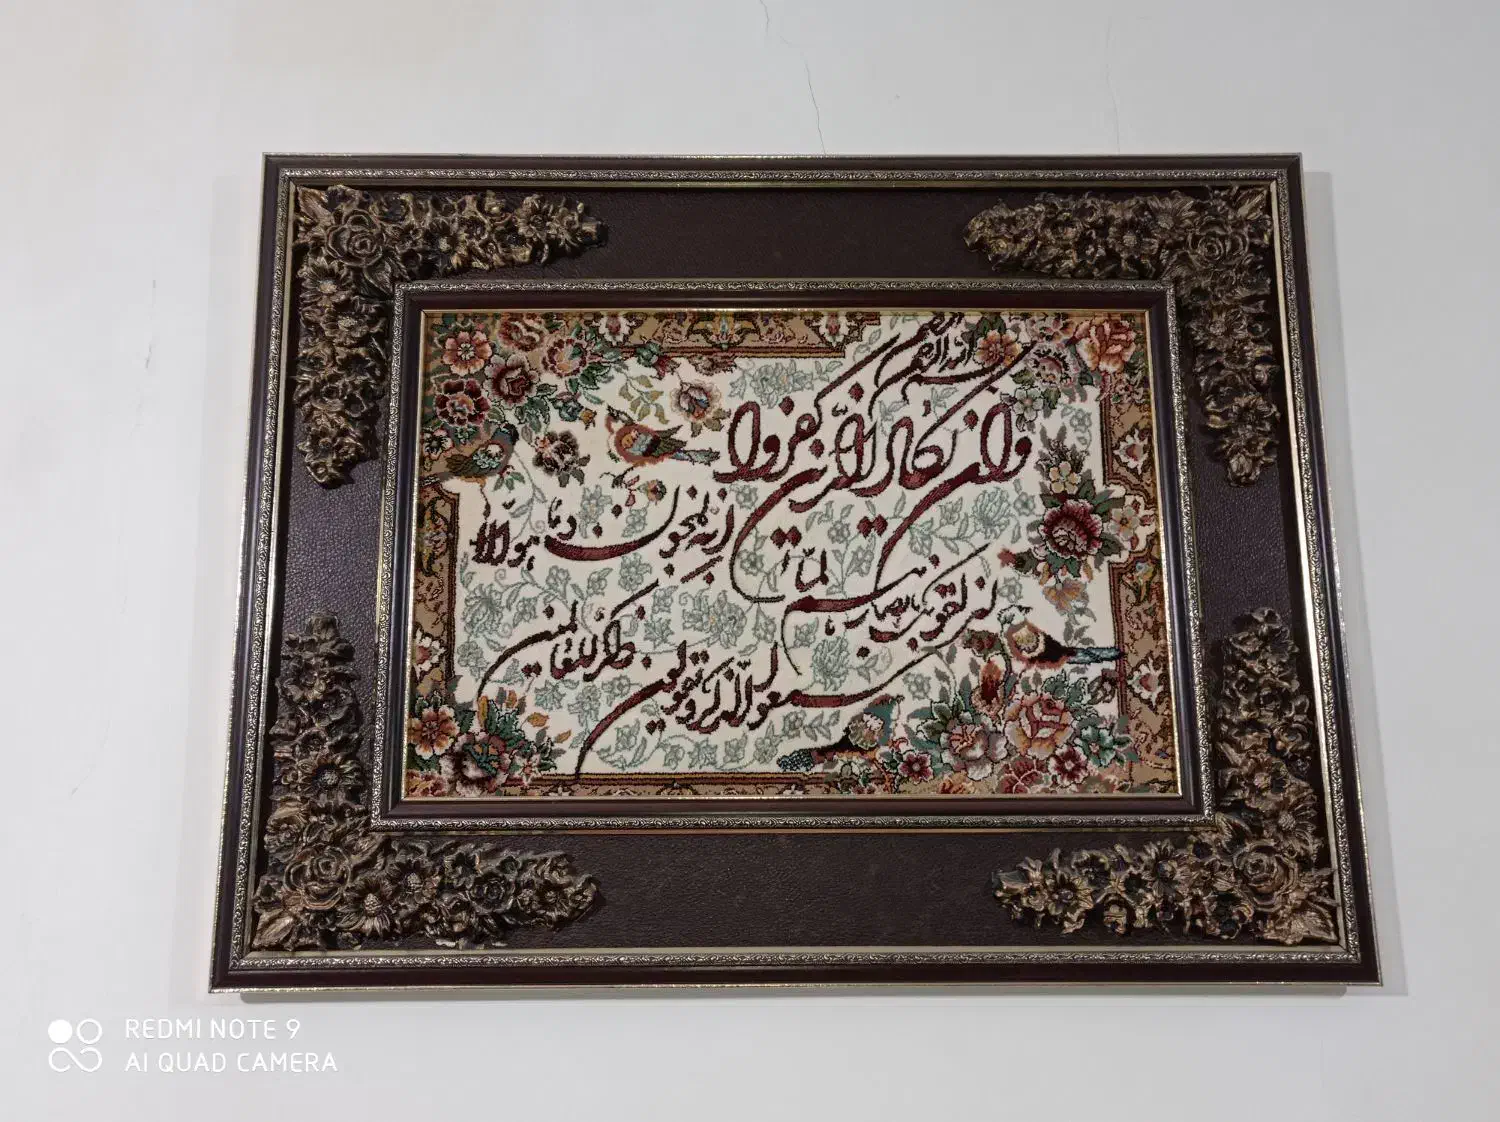 بسم الله الرحمن الرحیم
وان یکاد الذین کفروا
لیزلقونک بابصارهم لما
سمعوا الذکر و یقولون
انه لمجنون و ما هو الا
ذکر للعالمین
REDMI NOTE 9
AI QUAD CAMERA